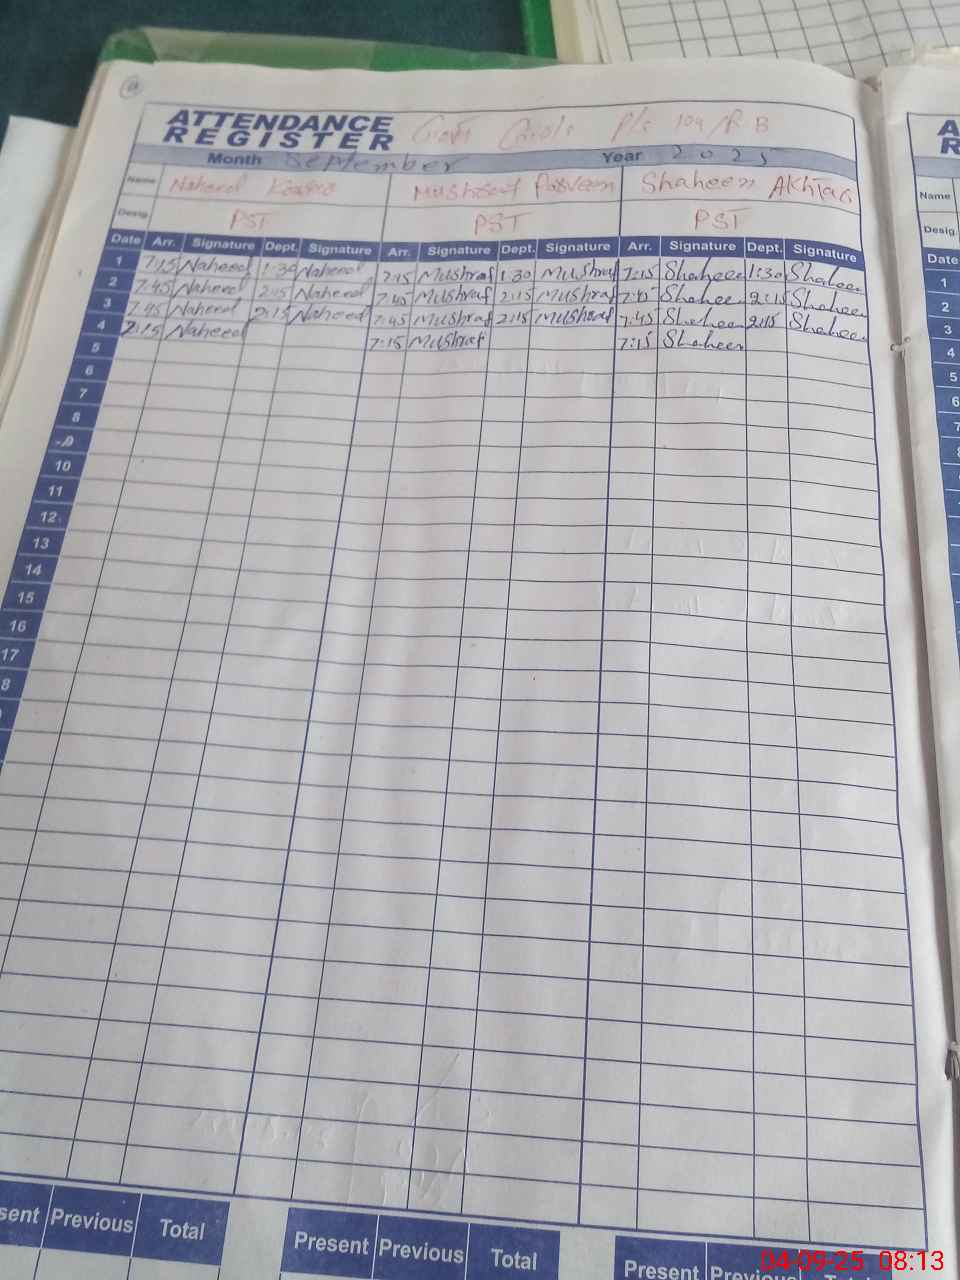 ATTENDANCE
REGISTER Govt P/S 104/R-B
Month September Year 2025
Name Mushraf Parveen Shaheen Akhtar
Desig. PST PST PST
Date Arr. Signature Dept. Signature Arr. Signature Dept. Signature Arr. Signature Dept. Signature
1 7:15 Naheed 1:30 Naheed 7:15 Mushraf 1:30 Mushraf 7:15 Shaheen 1:30 Shaheen
2 7:45 Naheed 2:15 Naheed 7:45 Mushraf 2:15 Mushraf Shaheen 2:15 Shaheen
3 7:45 Naheed 2:15 Naheed 7:45 Mushraf 2:15 Mushraf 7:45 Shaheen 2:15 Shaheen
4 Naheed 7:15 Mushraf 7:15 Shaheen
5
6
7
8
9
10
11
12
13
14
15
16
17
8
sent Previous Total Present Previous Total Present
A
R
Name
Desig.
Date
1
2
3
4
5
6
7
04-09-25 08:13